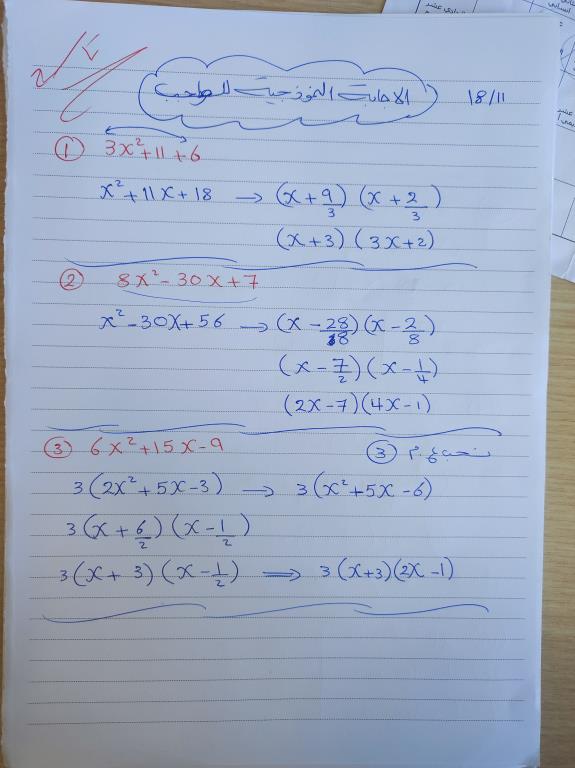 الاجابة النموذجية للواجب 18/11
① 3x²+11+6
x²+11x+18 → (x+9/3) (x+2/3)
(x+3) (3x+2)
② 8x²-30x+7
x²-30x+56 → (x-28/8)(x-2/8)
(x-7/2)(x-1/4)
(2x-7)(4x-1)
③ 6x²+15x-9 نسحب ع.م ③
3(2x²+5x-3) → 3(x²+5x-6)
3(x+6/2)(x-1/2)
3(x+3)(x-1/2) ⟹ 3(x+3)(2x-1)